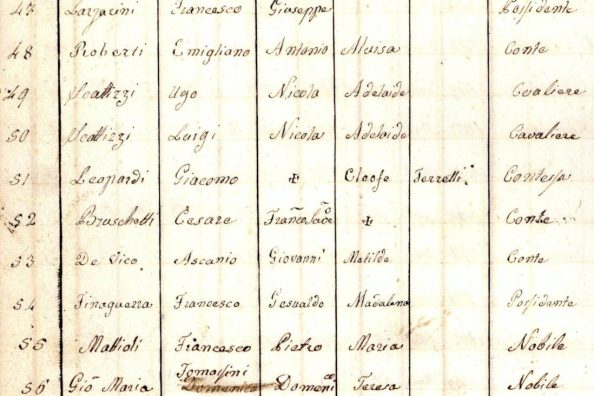 47 Lazzarini Francesco Giuseppe Possidente
48 Roberti Emigliano Antonio Aluisa Conte
49 Scattizzi Ugo Nicola Adelaide Cavaliere
50 Scattizzi Luigi Nicola Adelaide Cavaliere
51 Leopardi Giacomo ✠ Cleofe Ferretti Contessa
52 Bruschetti Cesare ✠ Conte
53 De Vico Ascanio Giovanni Matilde Conte
54 Finaguerra Francesco Gesualdo Madalena Possidente
55 Mattioli Francesco Pietro Maria Nobile
Tomassini
56 Gio Maria Domenico Domenco Teresa Nobile